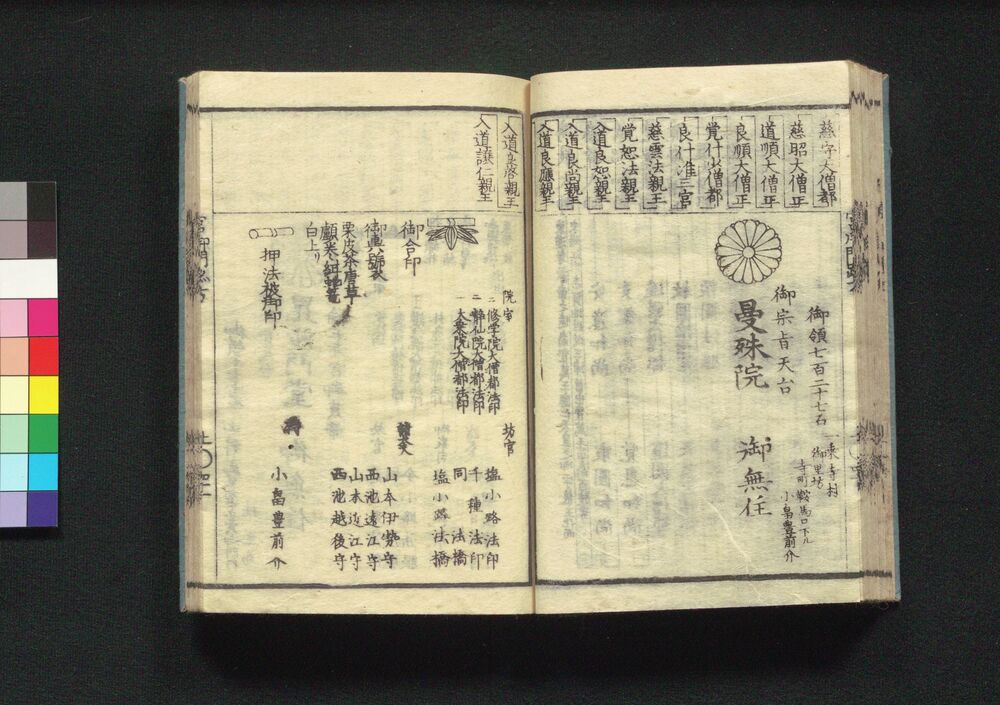 慈昭大僧正
道順大僧正
良順大僧正
覚什少僧都
良什准三宮
慈雲法親王
覚恕法親王
入道良恕親王
入道良尚親王
入道良應親王
御領七百二十七石
一乗寺村
御里坊
寺町鞍馬口下ル
小畠豊前介
御宗旨天台
曼殊院
御無住
入道譲仁親王
院室
修学院大僧都法印
静仙院大僧都法印
大乗院大僧都法印
坊官
塩小路法印
千種法印
同 法橋
塩小路法橋
御合印
諸大夫
山本伊勢守
西池遠江守
山本近江守
西池越後守
白上リ
押法被御印
侍
小畠豊前介